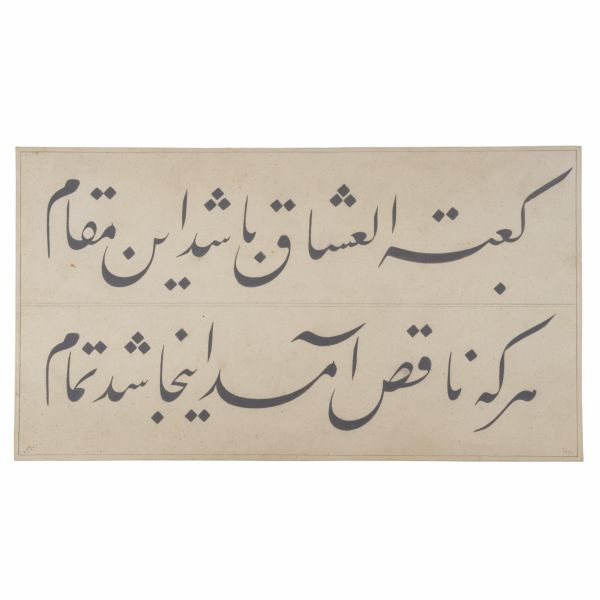 کعبتہ العشاق باشد این مقام
هر که ناقص آمد اینجا شد تمام